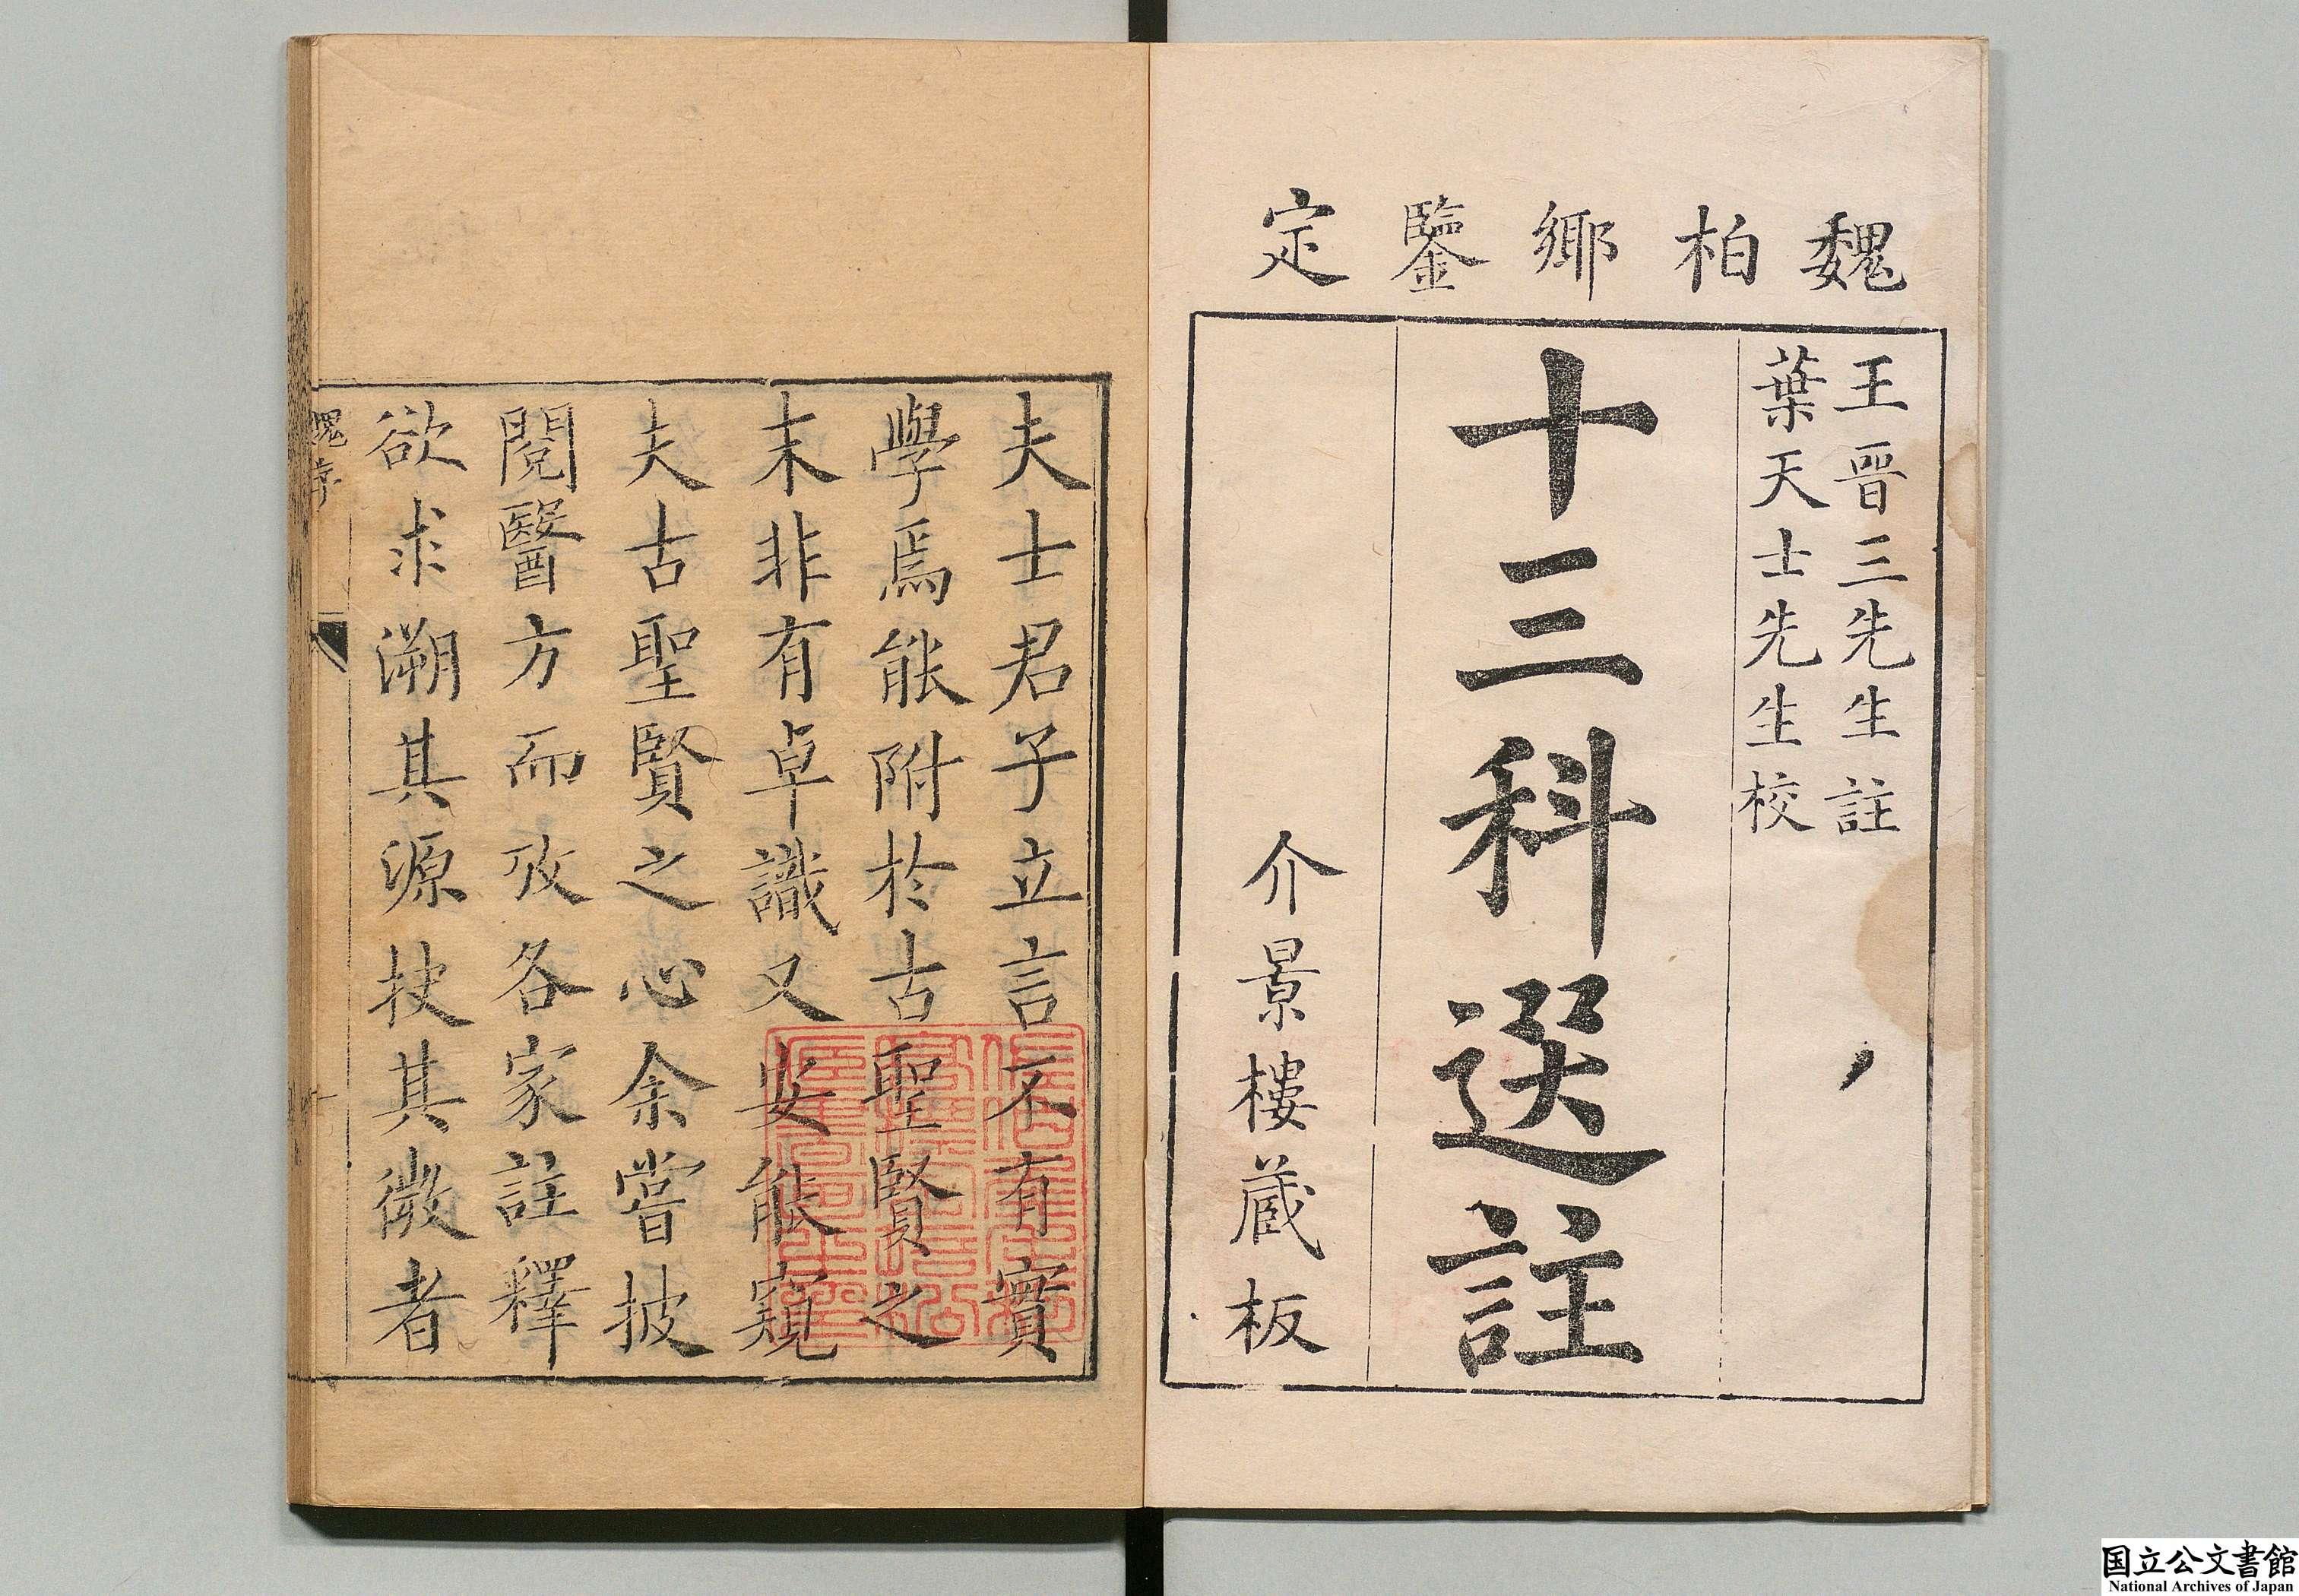 魏柏鄉鑒定
王晉三先生註
葉天士先生校
十三科選註
介景樓蔵板
夫士君子立言不有實
學焉能附於古聖賢之
末非有卓識又安能窺
夫古聖賢之心余嘗披
閱醫方而攷各家註釋
欲求溯其源抉其微者
魏序
国立公文書館
National Archives of Japan